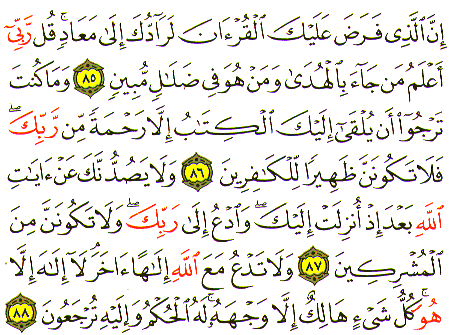 إِنَّ ٱلَّذِى فَرَضَ عَلَيْكَ ٱلْقُرْءَانَ لَرَآدُّكَ إِلَىٰ مَعَادٍۚ قُل رَّبِّىٓ
أَعْلَمُ مَن جَآءَ بِٱلْهُدَىٰ وَمَنْ هُوَ فِى ضَلَٰلٍ مُّبِينٍ ٨٥ وَمَا كُنتَ
تَرْجُوٓا۟ أَن يُلْقَىٰٓ إِلَيْكَ ٱلْكِتَٰبُ إِلَّا رَحْمَةً مِّن رَّبِّكَۖ
فَلَا تَكُونَنَّ ظَهِيرًا لِّلْكَٰفِرِينَ ٨٦ وَلَا يَصُدُّنَّكَ عَنْ ءَايَٰتِ
ٱللَّهِ بَعْدَ إِذْ أُنزِلَتْ إِلَيْكَۖ وَٱدْعُ إِلَىٰ رَبِّكَۖ وَلَا تَكُونَنَّ مِنَ
ٱلْمُشْرِكِينَ ٨٧ وَلَا تَدْعُ مَعَ ٱللَّهِ إِلَٰهًا ءَاخَرَۘ لَآ إِلَٰهَ إِلَّا
هُوَۚ كُلُّ شَىْءٍ هَالِكٌ إِلَّا وَجْهَهُۥۚ لَهُ ٱلْحُكْمُ وَإِلَيْهِ تُرْجَعُونَ ٨٨